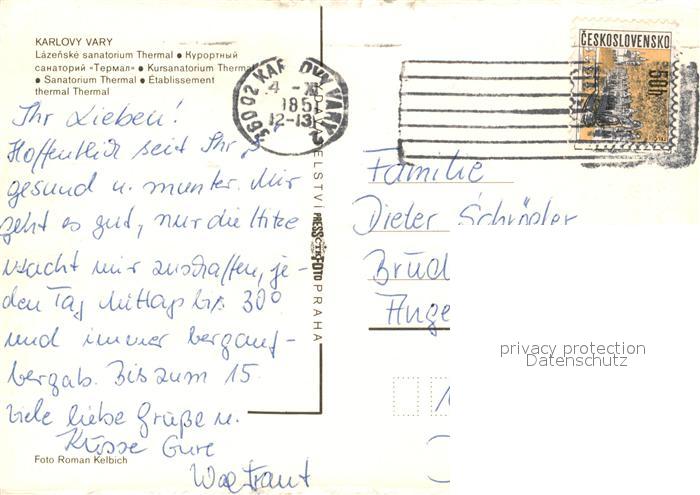 KARLOVY VARY
Lázeňské sanatorium Thermal ● Курортный
санаторий «Термал» ● Kursanatorium Thermal
● Sanatorium Thermal ● Établissement
thermal Thermal
Ihr Lieben!
Hoffentlich seit Ihr
gesund u. munter. Mir
geht es gut, nur die Hitze
macht mir zuschaffen, je-
den Tag Mittag bis 30°
und immer bergauf-
bergab. Bis zum 15.
viele liebe Grüße u.
Küsse Eure
Waltraut
Foto Roman Kelbich
PRESSFOTO PRAHA
360 02 KARLOVY VARY 2
12-13
ČESKOSLOVENSKO
50h
Familie
Dieter
Brüd
Ange
privacy protection
Datenschutz